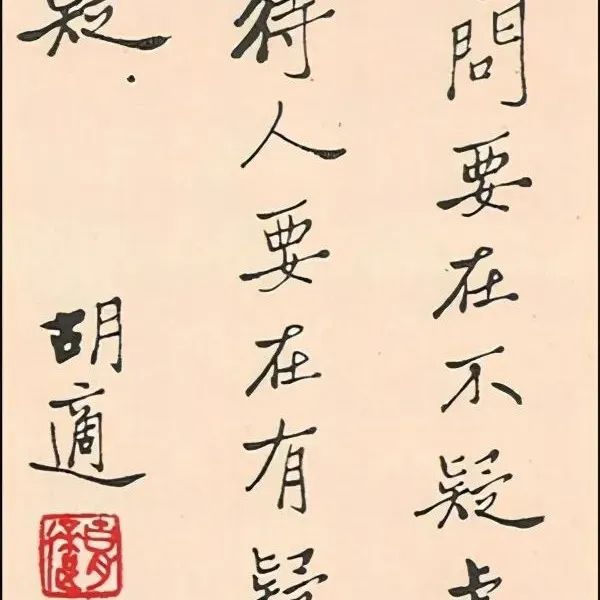 問要在不疑
待人要在有疑
疑.
胡適